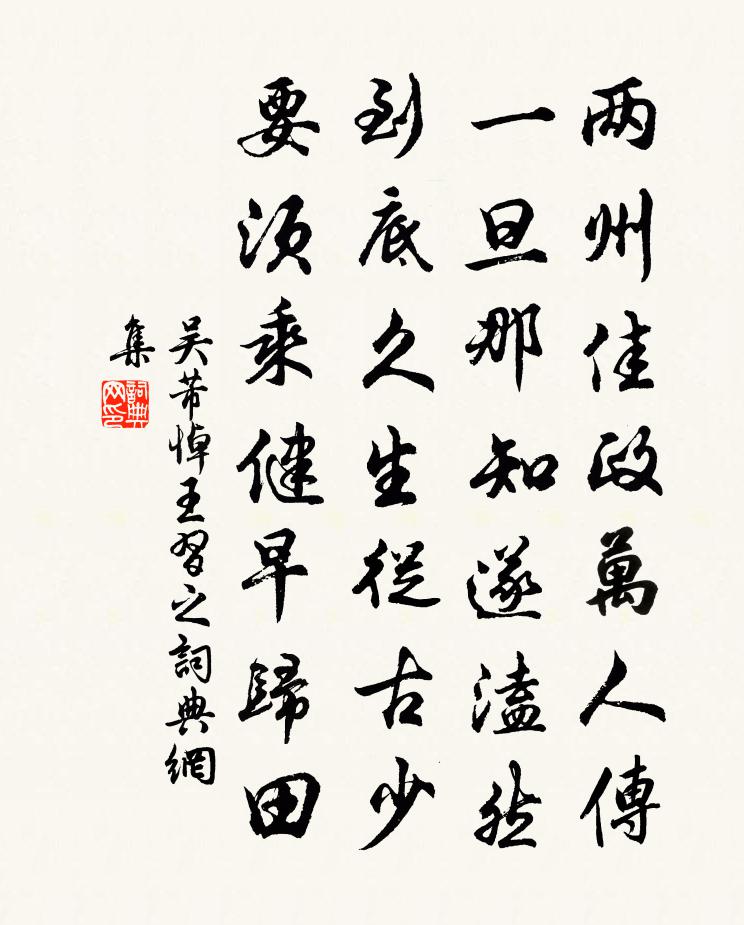 两州佳政萬人傳
一旦那知遂溘然
到底久生從古少
要須乘健早歸田
吴芾悼王習之詞典網
集
詞典網印